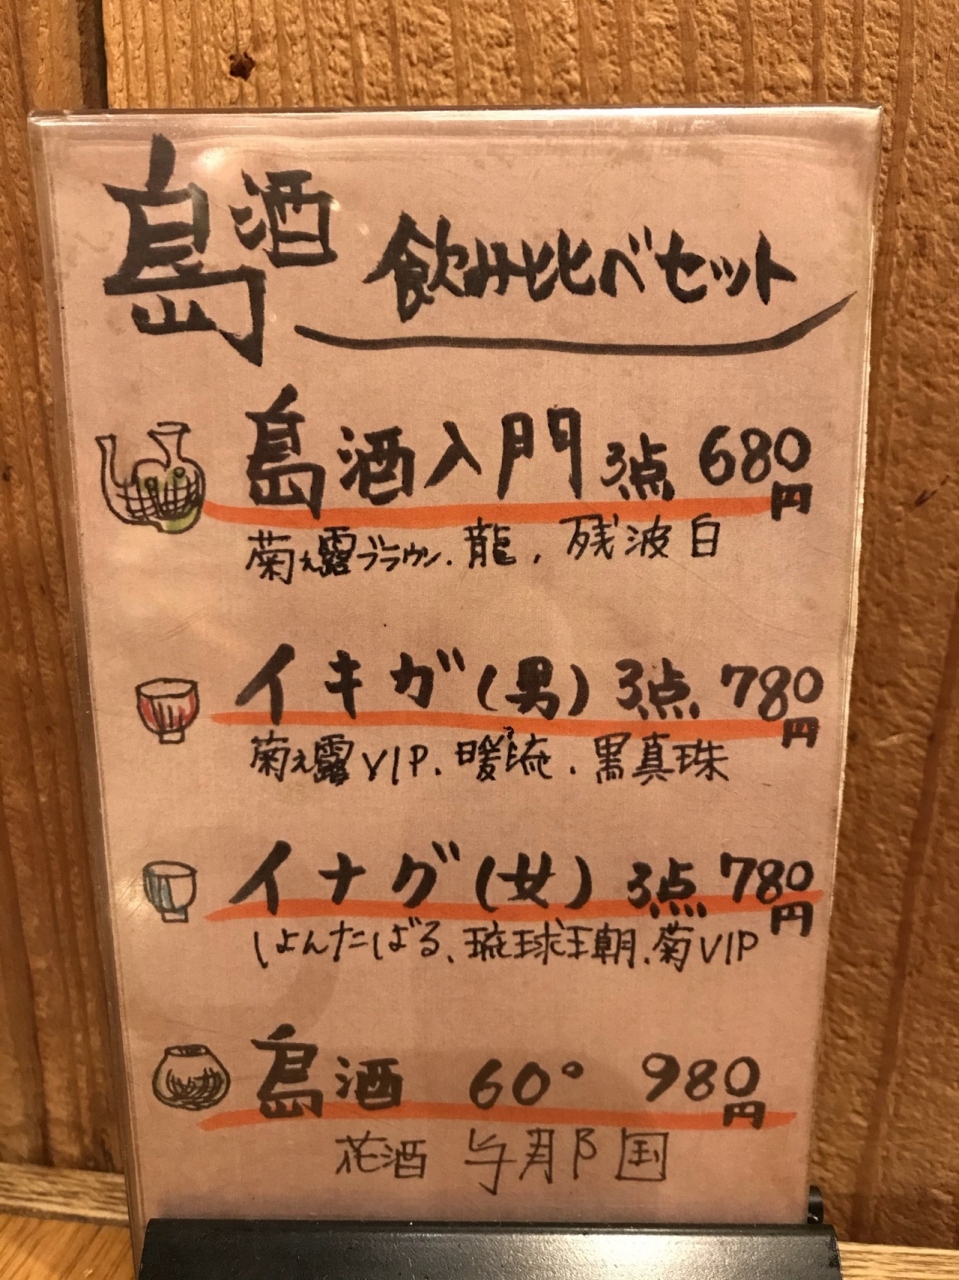 島酒 飲み比べセット
島酒入門 3点 680円
菊之露ブラウン.龍.残波白
イキガ(男) 3点 780円
菊之露VIP.暖流.黒真珠
イナグ(女) 3点 780円
しょんたばる、琉球王朝.菊VIP
島酒 60° 980円
花酒 与那国